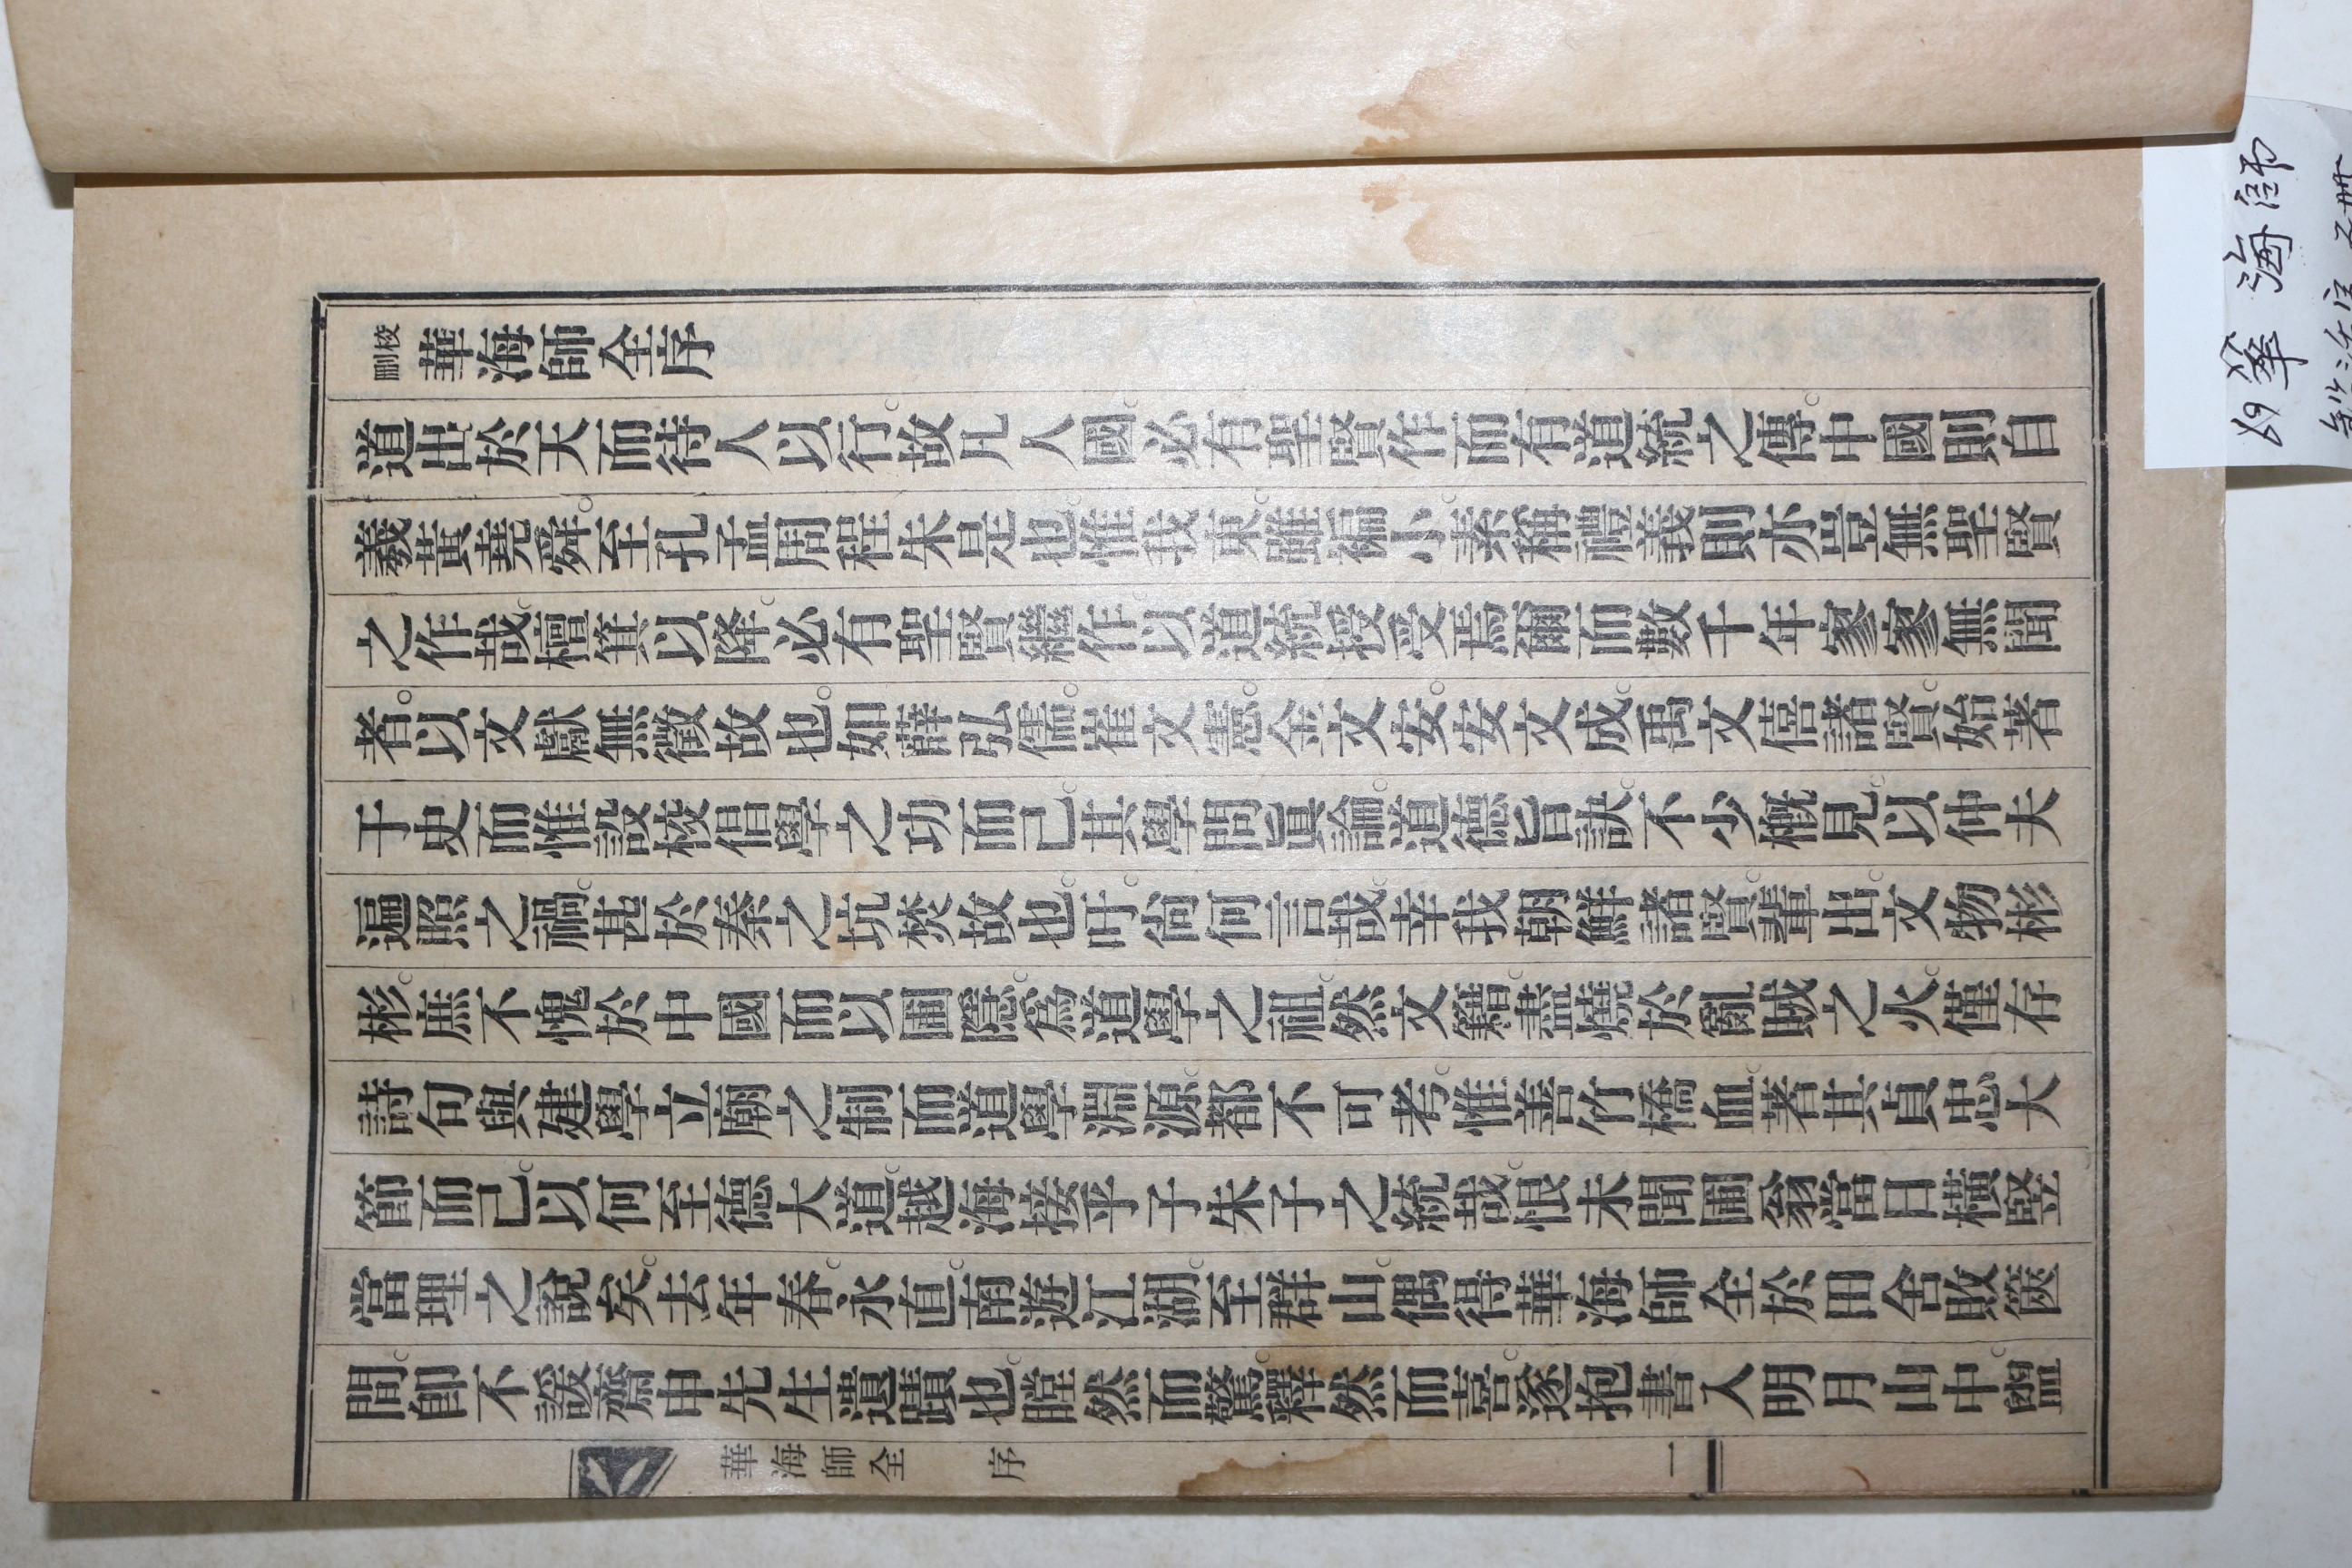 校刪華海師全序
道出於天而待人以行故凡人國必有聖賢作而有道統之傳中國則自
羲黃堯舜至孔孟周程朱是也惟我東雖褊小素稱禮義則亦豈無聖賢
之作哉檀箕以降必有聖賢繼作以道統授受焉爾而數千年寥寥無聞
者以文獻無徵故也如薛弘儒崔文憲金文安安文成禹文僖諸賢始著
于史而惟設校倡學之功而已其學問眞諦道德旨訣不少槪見以仲夫
逼照之禍甚於秦之坑焚故也吁尙何言哉幸我朝鮮諸賢輩出文物彬
彬庶不愧於中國而以圃隱爲道學之祖然文籍盡燒於亂賊之火僅存
詩句與建學立廟之制而道學淵源都不可考惟善竹橋血著其貞忠大
節而已以何至德大道越海接乎子朱子之統哉恨未聞圃翁當日橫竪
當理之說矣去年春永直南遊江湖至群山偶得華海師全於田舍敗篋
間卽不諼齋申先生遺蹟也瞠然而驚釋然而喜遂抱書入明月山中盥
華海師全 序 一
69 華海師